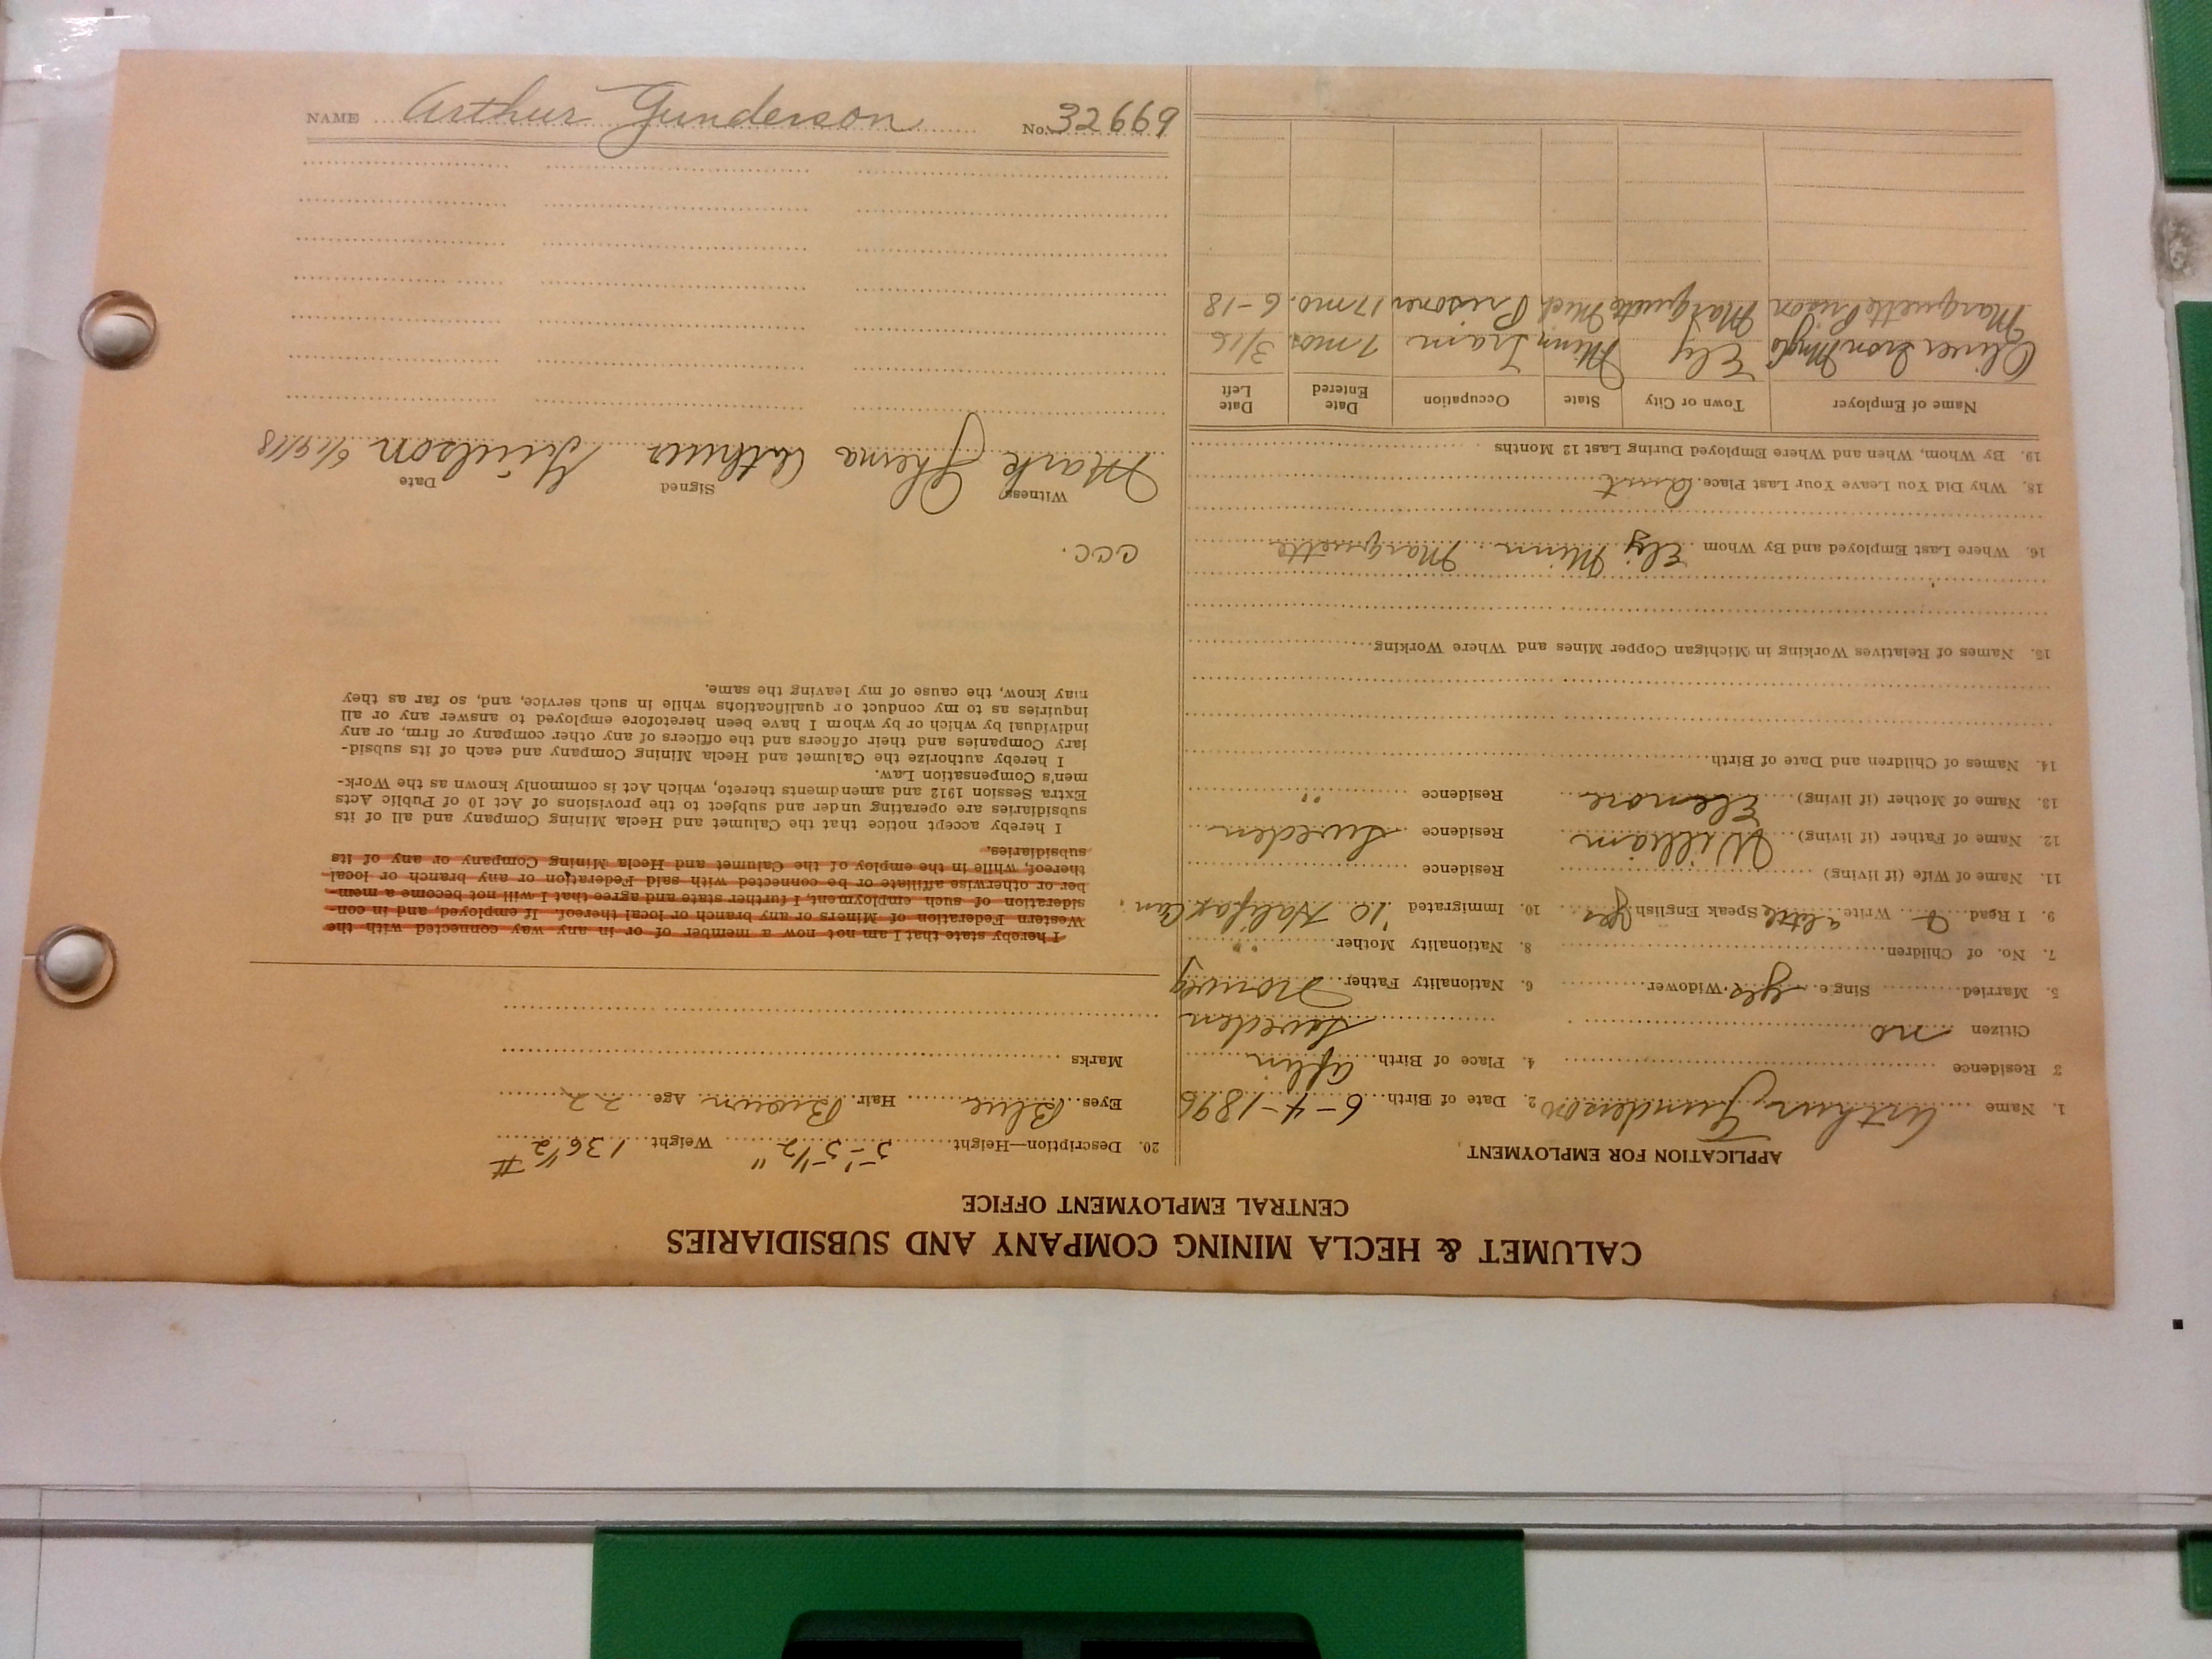 CALUMET & HECLA MINING COMPANY AND SUBSIDIARIES
CENTRAL EMPLOYMENT OFFICE
APPLICATION FOR EMPLOYMENT
1. Name Arthur Gunderson 2. Date of Birth 6-4-1896
3 Residence 4. Place of Birth
Citizen no Sweden
5. Married Single yes Widower 6. Nationality Father Norway
7. No. of Children 8. Nationality Mother "
9. I Read Write a little Speak English yes 10. Immigrated '10 Halifax Can.
11. Name of Wife (if living) Residence
12. Name of Father (if living) William Residence Sweden
13. Name of Mother (if living) Elenore Residence "
14. Names of Children and Date of Birth
15. Names of Relatives Working in Michigan Copper Mines and Where Working
16. Where Last Employed and By Whom Ely Minn. Marquette
18. Why Did You Leave Your Last Place.
19. By Whom, When and Where Employed During Last 12 Months
Name of Employer Town or City State Occupation Date Entered Date Left
Oliver Iron Mng Co Ely Minn Tram 7 mos. 3/16
Marquette Prison Marquette Mich Prisoner 17 mo. 6-18
20. Description—Height 5'-5 1/2" Weight 136 1/2 #
Eyes Blue Hair Brown Age 22
Marks
I hereby state that I am not now a member of or in any way connected with the
Western Federation of Miners or any branch or local thereof. If employed, and in con-
sideration of such employment, I further state and agree that I will not become a mem-
ber or otherwise affiliate or be connected with said Federation or any branch or local
thereof, while in the employ of the Calumet and Hecla Mining Company or any of its
subsidiaries.
I hereby accept notice that the Calumet and Hecla Mining Company and all of its
subsidiaries are operating under and subject to the provisions of Act 10 of Public Acts
Extra Session 1912 and amendments thereto, which Act is commonly known as the Work-
men's Compensation Law.
I hereby authorize the Calumet and Hecla Mining Company and each of its subsid-
iary Companies and their officers and the officers of any other company or firm, or any
individual by which or by whom I have been heretofore employed to answer any or all
inquiries as to my conduct or qualifications while in such service, and, so far as they
may know, the cause of my leaving the same.
CCC.
Witness Signed Date
Mark Arthur 6/19/18
NAME Arthur Gunderson No. 32669